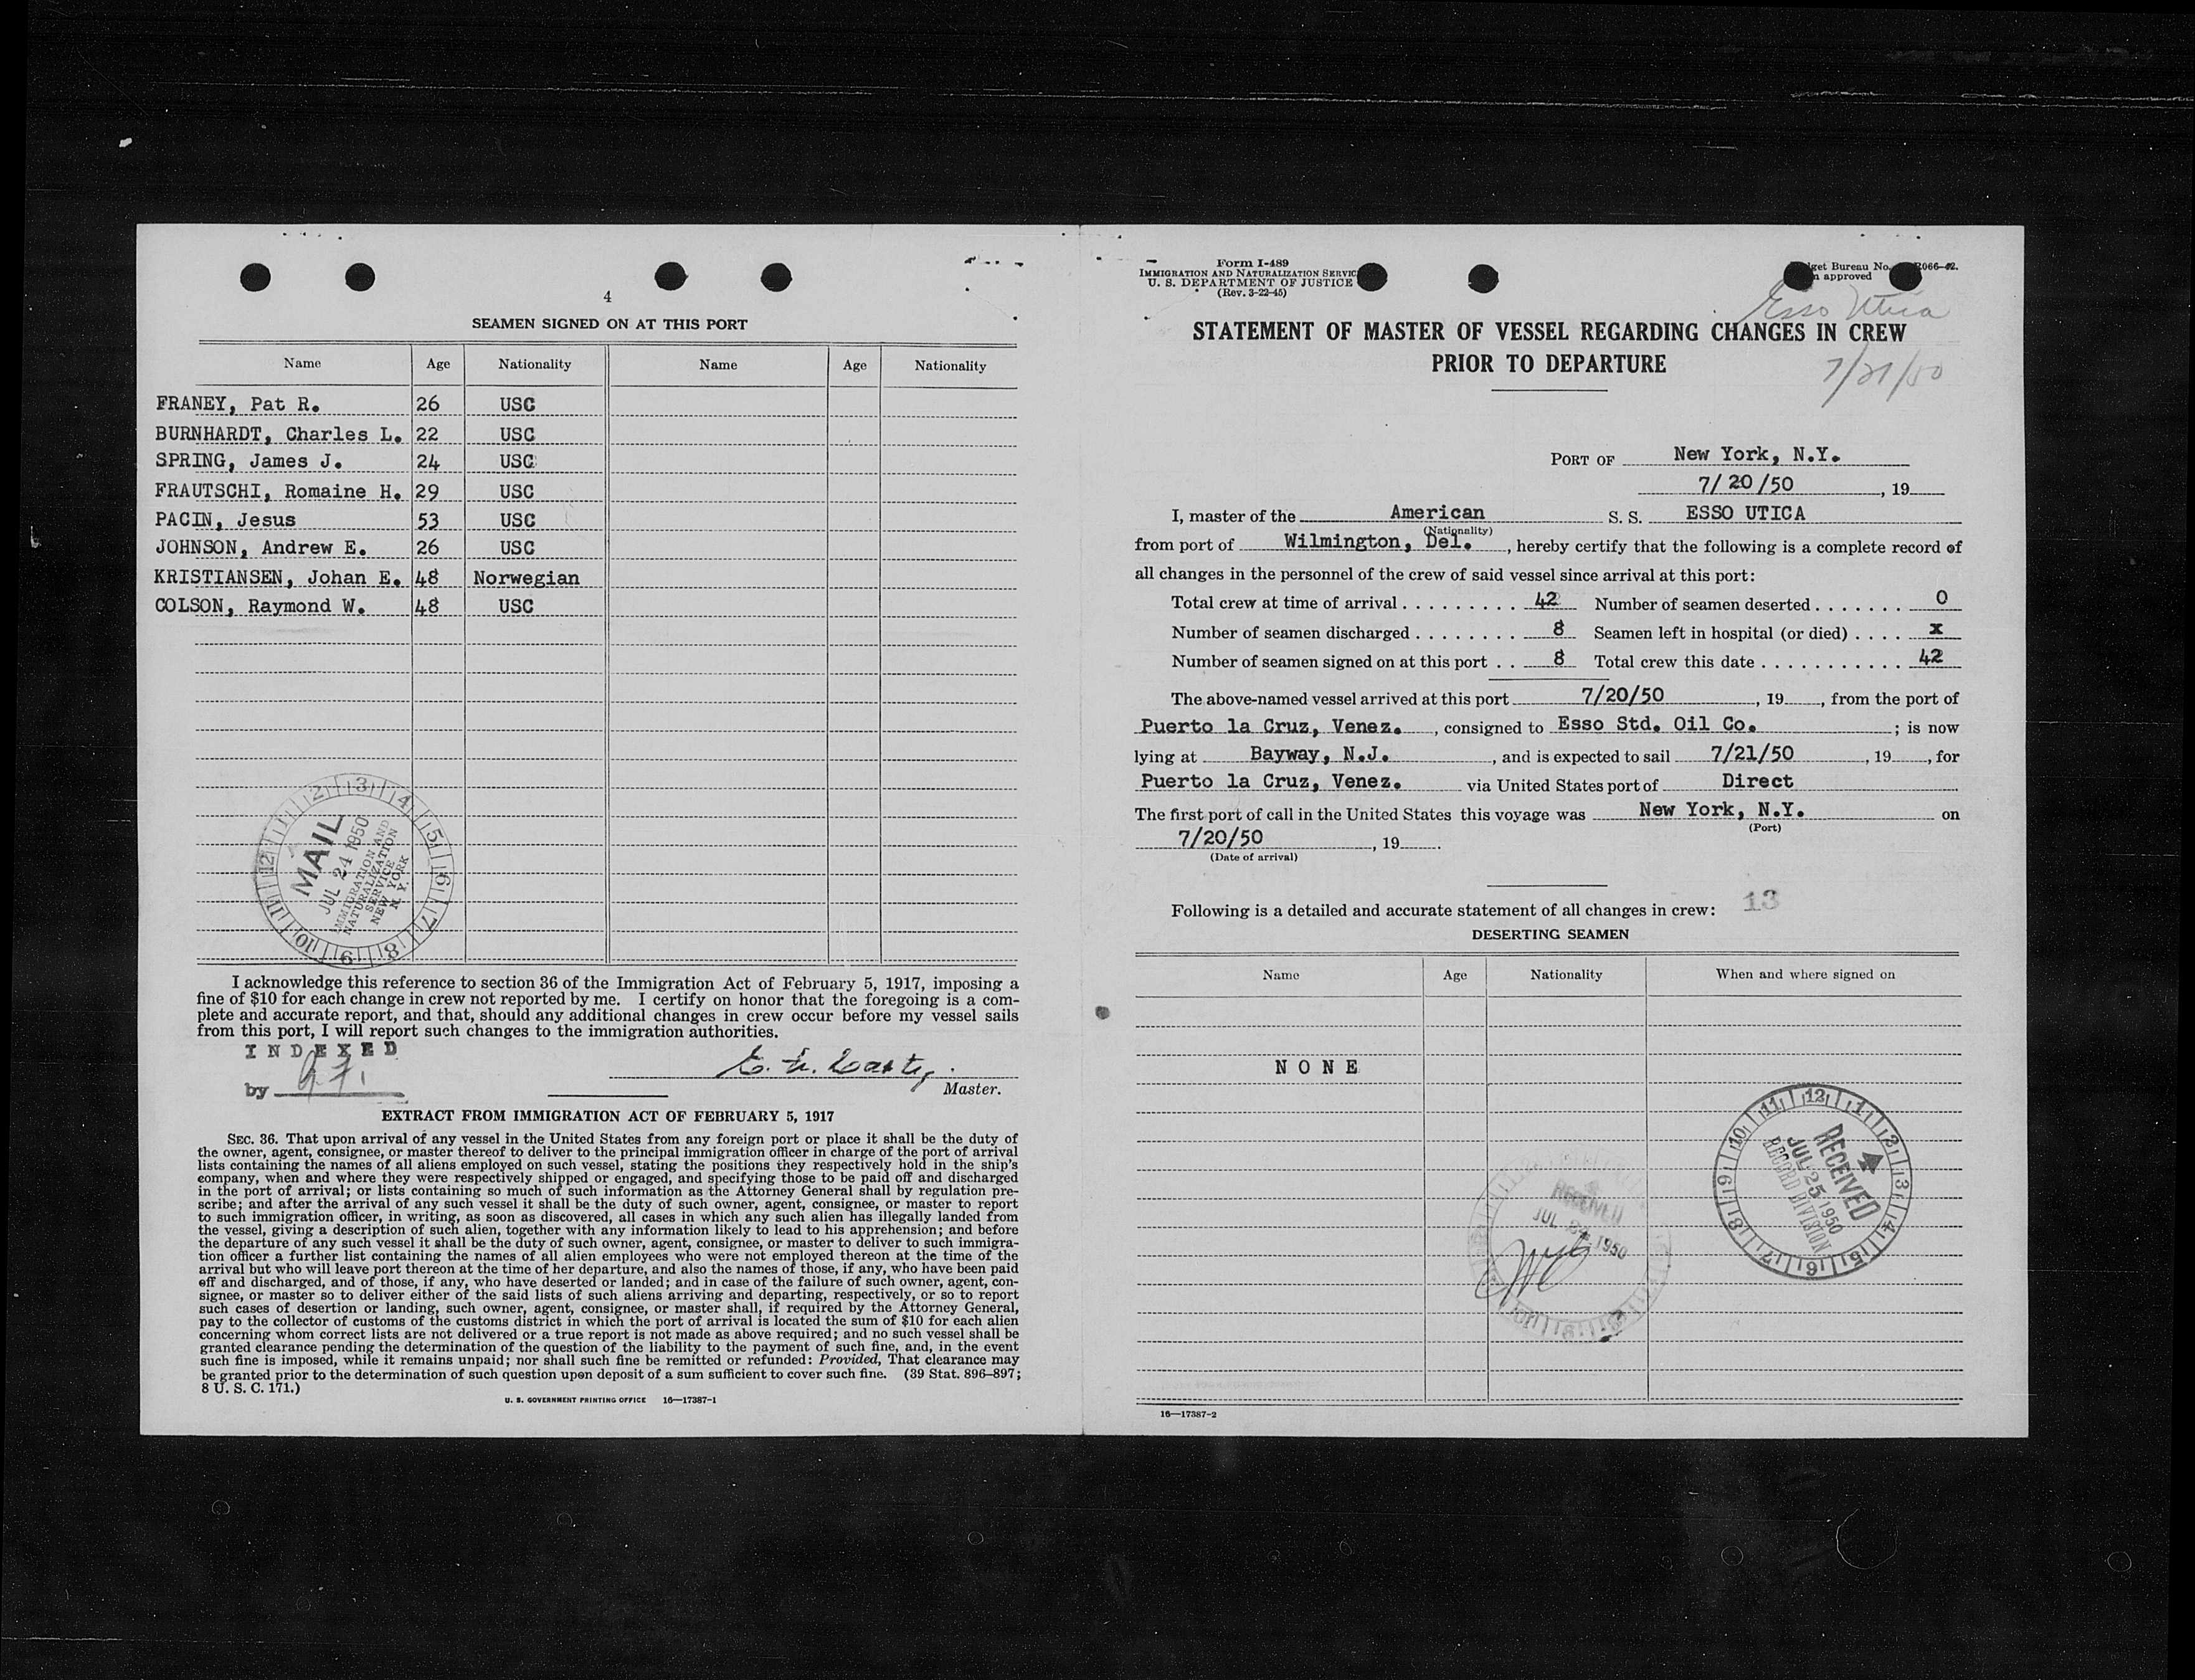 4
SEAMEN SIGNED ON AT THIS PORT
Name Age Nationality Name Age Nationality
FRANEY, Pat R. 26 USC
BURNHARDT, Charles L. 22 USC
SPRING, James J. 24 USC
FRAUTSCHI, Romaine H. 29 USC
PACIN, Jesus 53 USC
JOHNSON, Andrew E. 26 USC
KRISTIANSEN, Johan E. 48 Norwegian
COLSON, Raymond W. 48 USC
1 2 3 4 5 6 7 8 9 10 11 12
MAIL
JUL 24 1950
IMMIGRATION AND
NATURALIZATION
SERVICE
NEW YORK
N. Y.
I acknowledge this reference to section 36 of the Immigration Act of February 5, 1917, imposing a
fine of $10 for each change in crew not reported by me. I certify on honor that the foregoing is a com-
plete and accurate report, and that, should any additional changes in crew occur before my vessel sails
from this port, I will report such changes to the immigration authorities.
INDEXED
by
Master.
EXTRACT FROM IMMIGRATION ACT OF FEBRUARY 5, 1917
SEC. 36. That upon arrival of any vessel in the United States from any foreign port or place it shall be the duty of
the owner, agent, consignee, or master thereof to deliver to the principal immigration officer in charge of the port of arrival
lists containing the names of all aliens employed on such vessel, stating the positions they respectively hold in the ship's
company, when and where they were respectively shipped or engaged, and specifying those to be paid off and discharged
in the port of arrival; or lists containing so much of such information as the Attorney General shall by regulation pre-
scribe; and after the arrival of any such vessel it shall be the duty of such owner, agent, consignee, or master to report
to such immigration officer, in writing, as soon as discovered, all cases in which any such alien has illegally landed from
the vessel, giving a description of such alien, together with any information likely to lead to his apprehension; and before
the departure of any such vessel it shall be the duty of such owner, agent, consignee, or master to deliver to such immigra-
tion officer a further list containing the names of all alien employees who were not employed thereon at the time of the
arrival but who will leave port thereon at the time of her departure, and also the names of those, if any, who have been paid
off and discharged, and of those, if any, who have deserted or landed; and in case of the failure of such owner, agent, con-
signee, or master so to deliver either of the said lists of such aliens arriving and departing, respectively, or so to report
such cases of desertion or landing, such owner, agent, consignee, or master shall, if required by the Attorney General,
pay to the collector of customs of the customs district in which the port of arrival is located the sum of $10 for each alien
concerning whom correct lists are not delivered or a true report is not made as above required; and no such vessel shall be
granted clearance pending the determination of the question of the liability to the payment of such fine, and, in the event
such fine is imposed, while it remains unpaid; nor shall such fine be remitted or refunded: Provided, That clearance may
be granted prior to the determination of such question upon deposit of a sum sufficient to cover such fine. (39 Stat. 896–897;
8 U. S. C. 171.)
U. S. GOVERNMENT PRINTING OFFICE 16—17387-1
Form I-489
IMMIGRATION AND NATURALIZATION SERVIC
U. S. DEPARTMENT OF JUSTICE
(Rev. 3-22-45)
get Bureau No. R066-42.
approved
Esso Utica
STATEMENT OF MASTER OF VESSEL REGARDING CHANGES IN CREW
PRIOR TO DEPARTURE
7/21/50
PORT OF New York, N.Y.
7/20/50, 19
I, master of the American S. S. ESSO UTICA
(Nationality)
from port of Wilmington, Del., hereby certify that the following is a complete record of
all changes in the personnel of the crew of said vessel since arrival at this port:
Total crew at time of arrival . . . . . . . . . 42 Number of seamen deserted . . . . . . . 0
Number of seamen discharged . . . . . . . . 8 Seamen left in hospital (or died) . . . . x
Number of seamen signed on at this port . . 8 Total crew this date . . . . . . . . . . . 42
The above-named vessel arrived at this port 7/20/50, 19, from the port of
Puerto la Cruz, Venez., consigned to Esso Std. Oil Co. ; is now
lying at Bayway, N.J., and is expected to sail 7/21/50, 19, for
Puerto la Cruz, Venez. via United States port of Direct
The first port of call in the United States this voyage was New York, N.Y. on
(Port)
7/20/50, 19.
(Date of arrival)
Following is a detailed and accurate statement of all changes in crew: 13
DESERTING SEAMEN
Name Age Nationality When and where signed on
NONE
12 1 2 3 4 5 6 7 8 9 10 11
RECEIVED
JUL 25 1950
RECORD DIVISION
RECEIVED
JUL 24 1950
16—17387-2